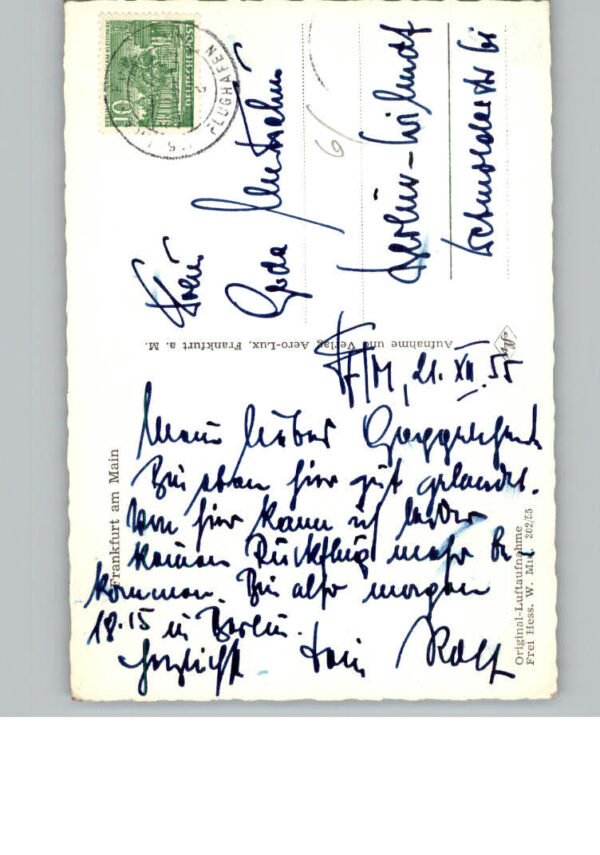 10
DEUTSCHE POST
FLUGHAFEN
Frau
Gerda
Berlin-Wilmdf
Frankfurt am Main
Aufnahme und Verlag Aero-Lux, Frankfurt a. M.
Agfa
Original-Luftaufnahme
Frei Hess. W. Min. 302/55
Ff/M, 21. XII. 55
Mein lieber
Bin eben hier gut gelandet.
Von hier kann ich leider
keinen Rückflug mehr be
kommen. Bin also morgen
18.15 in Berlin.
Herzlichst Dein Rolf